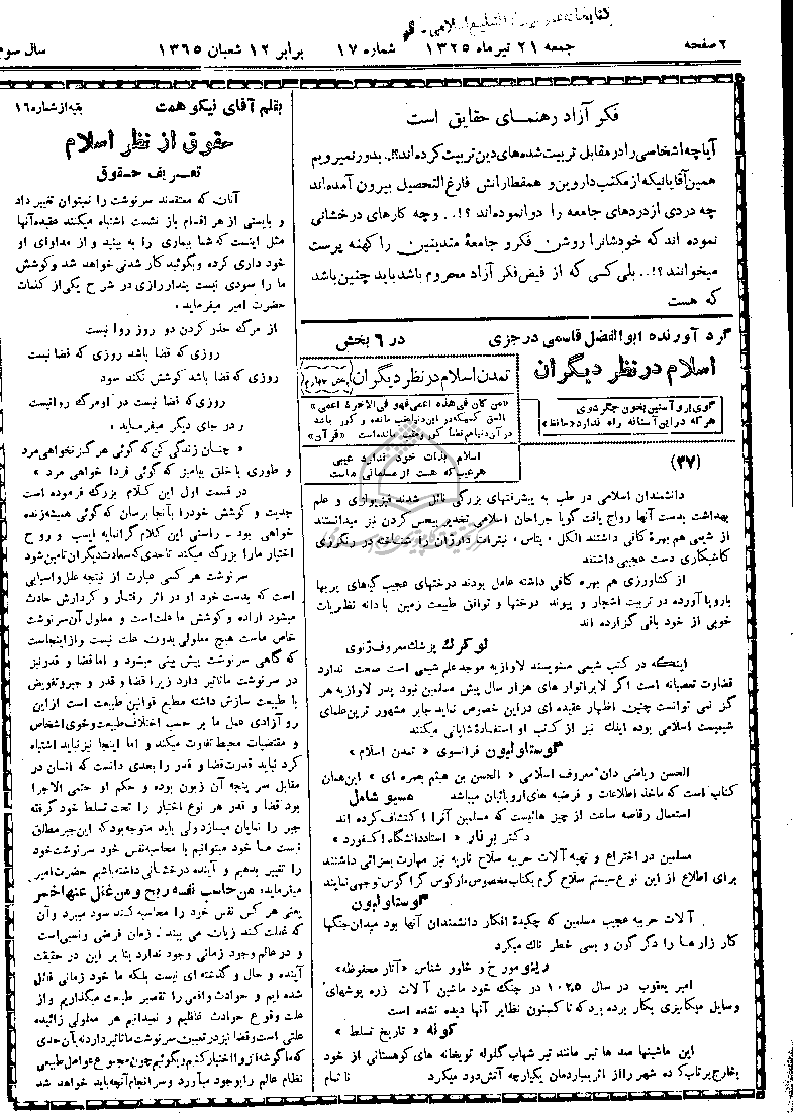 ۲ صفحه جمعه ۲۱ تیر ماه ۱۳۲۵ شماره ۱۷ برابر ۱۲ شعبان ۱۳۶۵ سال سوم
فکر آزاد رهنمای حقایق است
آیا چه اشخاصی را در مقابل تربیت شده های دین تربیت کرده اند؟!.. بدور نمیرویم
همین آقایانیکه از مکتب داروین و همقطارانش فارغ التحصیل بیرون آمده اند
چه دردی از دردهای جامعه را دوا نموده اند ؟!.. و چه کارهای درخشانی
نموده اند که خودشانرا روشن فکر و جامعهٔ متدینین را کهنه پرست
میخوانند ؟!.. بلی کسی که از فیض فکر آزاد محروم باشد باید چنین باشد
که هست
گرد آورنده ابوالفضل قاسمی درجزی در ۶ بخش
اسلام در نظر دیگران
گوی رو آستین بخون جگر شوی
هر که در این آستانه راه ندارد «حافظ»
تمدن اسلام در نظر دیگران
بخش چهارم
«من کان فی هذه اعمی فهو فی الاخرة اعمی»
در آن دنیا هم «قرآن»
اسلام بذات خود ندارد عیبی
هر عیب که هست از مسلمانی ماست
(۳۷)
دانشمندان اسلامی در طب به پیشرفتهای بزرگی نائل شدند فیزیوازی و علم
بهداشت بدست آنها رواج یافت گویا جراحان اسلامی تخدیر بیحس کردن نیز میدانستند
از شیمی هم بهرهٔ کافی داشتند الکل ، پتاس ، نیترات دارژان را شناخته در رنگرزی
کاشیکاری دست عجیبی داشتند
از کشاورزی هم بهره کافی داشته عامل بودند درختهای عجیب گیاهای پربها
باروپا آورده در تربیت اشجار و پیوند درختها و توافق طبیعت زمین با دانه نظریات
خوبی از خود باقی گزارده اند
لوکرک پزشک معروف ژنوی
اینکه در کتب شیمی مینویسند لاوازیه موجد علم شیمی است صحت ندارد
قضاوت تعصبانه است اگر لابراتوار های هزار سال پیش مسلمین نبود پدر لاوازیه هر
گز نمی توانست چنین اظهار عقیده ای در این خصوص نماید جابر مشهور ترین علمای
شیمیست اسلامی بوده اینك نیز از کتب او استفادهٔ شایانی میکنند
گوستاولبون فرانسوی « تمدن اسلام »
الحسن ریاضی دان معروف اسلامی « الحسن بن هیثم بصره ای » این همان
کتاب است که ماخذ اطلاعات و فرضیه های اروپائیان میباشد مسیو شامل
استعمال رقاصه ساعت از چیز هائیست که مسلمین آنرا اکتشاف کرده اند
دکتر برنار « استاد دانشگاه اکفورد »
مسلمین در اختراع و تهیه آلات حربیه سلاح ناریه نیز مهارت بسزائی داشتند
برای اطلاع از این نوع سیستم سلاح گرم بکتاب مخصوص مارکوس گراگوس توجهی نمایند
گوستاولبون
آلات حربیه عجیب مسلمین که چکیدهٔ افکار دانشمندان آنها بود میدان جنگها
کار زار ها را دگر گون و بسی خطر ناك میکرد
مورخ و خاور شناس «آثار محفوظه»
امیر یعقوب در سال ۱۰۲۵ در جنگ خود ماشین آلات زره پوشهای
وسایل میکانیزی بکار برده بود که تاکنون نظایر آنها دیده نشده است
کونه « تاریخ تسلط »
این ماشینها صد ها تیر مانند تیر شهاب گلوله توپخانه های کوهستانی از خود
بخارج پرتاب کرده شهر را از اثر بمباردمان یکپارچه آتش دود میکرد نا تمام
بقلم آقای نیکو همت بقیه از شماره ۱۶
حقوق از نظر اسلام
تعریف حقوق
آنان که معتقدند سرنوشت را نمیتوان تغییر داد
و بایستی از هر اقدام باز نشست اشتباه میکنند عقیده آنها
مثل اینست که شما بیماری را به بینید و از مداوای او
خود داری کرده وبگوئید کار شدنی خواهد شد و کوشش
ما را سودی نیست پندار رازی در شرح یکی از کلمات
حضرت امیر میفرماید ؛
از مرگ حذر کردن دو روز روا نیست
روزی که قضا باشد روزی که قضا نیست
روزی که قضا باشد کوشش نکند سود
روزی که قضا نیست در او مرگ روا نیست
در جای دیگر میفرماید ؛
« چنان زندگی کن که گوئی هرگز نخواهی مرد
و طوری با خلق بیامیز که گوئی فردا خواهی مرد »
در قسمت اول این کلام بزرگ فرموده است
جدیت و کوشش خود را بآنجا برسان که گوئی همیشه زنده
خواهی بود . راستی این کلام گرانمایه ایست و روح
اختیار مارا بزرگ میکند تا حدی که سعادت دیگران تامین شود
سرنوشت هر کسی عبارت از نتیجه علل و اسبابی
است که بدست خود او در اثر رفتار و کردارش حادث
میشود اراده و کوشش ما علت است و معلول آن سرنوشت
خاص ماست هیچ معلولی بدون علت نیست و از اینجاست
که گاهی سرنوشت پیش بینی میشود و اما قضا و قدر نیز
در سرنوشت ما تاثیر دارد زیرا قضا و قدر و جبر و تفویض
با طبیعت سازش داشته مطیع قوانین طبیعت است از این
رو آزادی عمل ما بر حسب اختلاف طبیعت و خوی اشخاص
و مقتضیات محیط تفاوت میکند و اما اینجا نیز نباید اشتباه
کرد نباید قدرت قضا و قدر را بعدی دانست که انسان در
مقابل سر پنجه آن زبون بوده و حکم او حتمی الاجرا
بود قضا و قدر هر نوع اختیار را تحت تسلط خود گرفته
جبر را نمایان میسازد ولی باید متوجه بود که این جبر مطلق
نیست ما خود میتوانیم با محاسبه نفس خود سرنوشت خود
را تغییر بدهیم و آینده درخشانی داشته باشیم حضرت امیر
میفرماید: من حاسب نفسه ربح و من غفل عنها خسر
یعنی هر کس نفس خود را محاسبه کند سود میبرد و آن
که غفلت کند زیان می بیند . زمان فرضی و نسبی است
و در عالم وجود زمانی وجود ندارد بنا بر این در حقیقت
آینده و حال و گذشته ای نیست بلکه ما خود زمانی قائل
شده ایم و حوادث واقعی را تقصیر طبیعت میگذاریم و از
علت وقوع حوادث غافلیم و نمیدانیم هر معلولی زائیده
علتی است و قضا نیز در تعیین سرنوشت ما تاثیر دارد نه بآن حدی
که ما گوشه انزوا اختیار کنیم و بگوئیم چون مجموع عوامل طبیعی
نظام عالم را بوجود میآورد و سر انجام آنچه باید خواهد شد